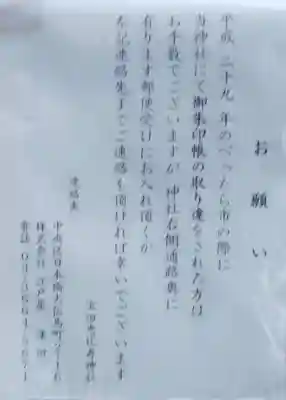 お願い
平成二十九年のべったら市の際に
当神社にて御朱印帳の取り違をされた方は
お手数でございますが 神社右側通路奥に
有ります郵便受けにお入れ頂くか
左記連絡先までご連絡を頂ければ幸いでございます
宝田恵比寿神社
連絡先
中央区日本橋大伝馬町
株式会社 江戸屋 濱田
電話